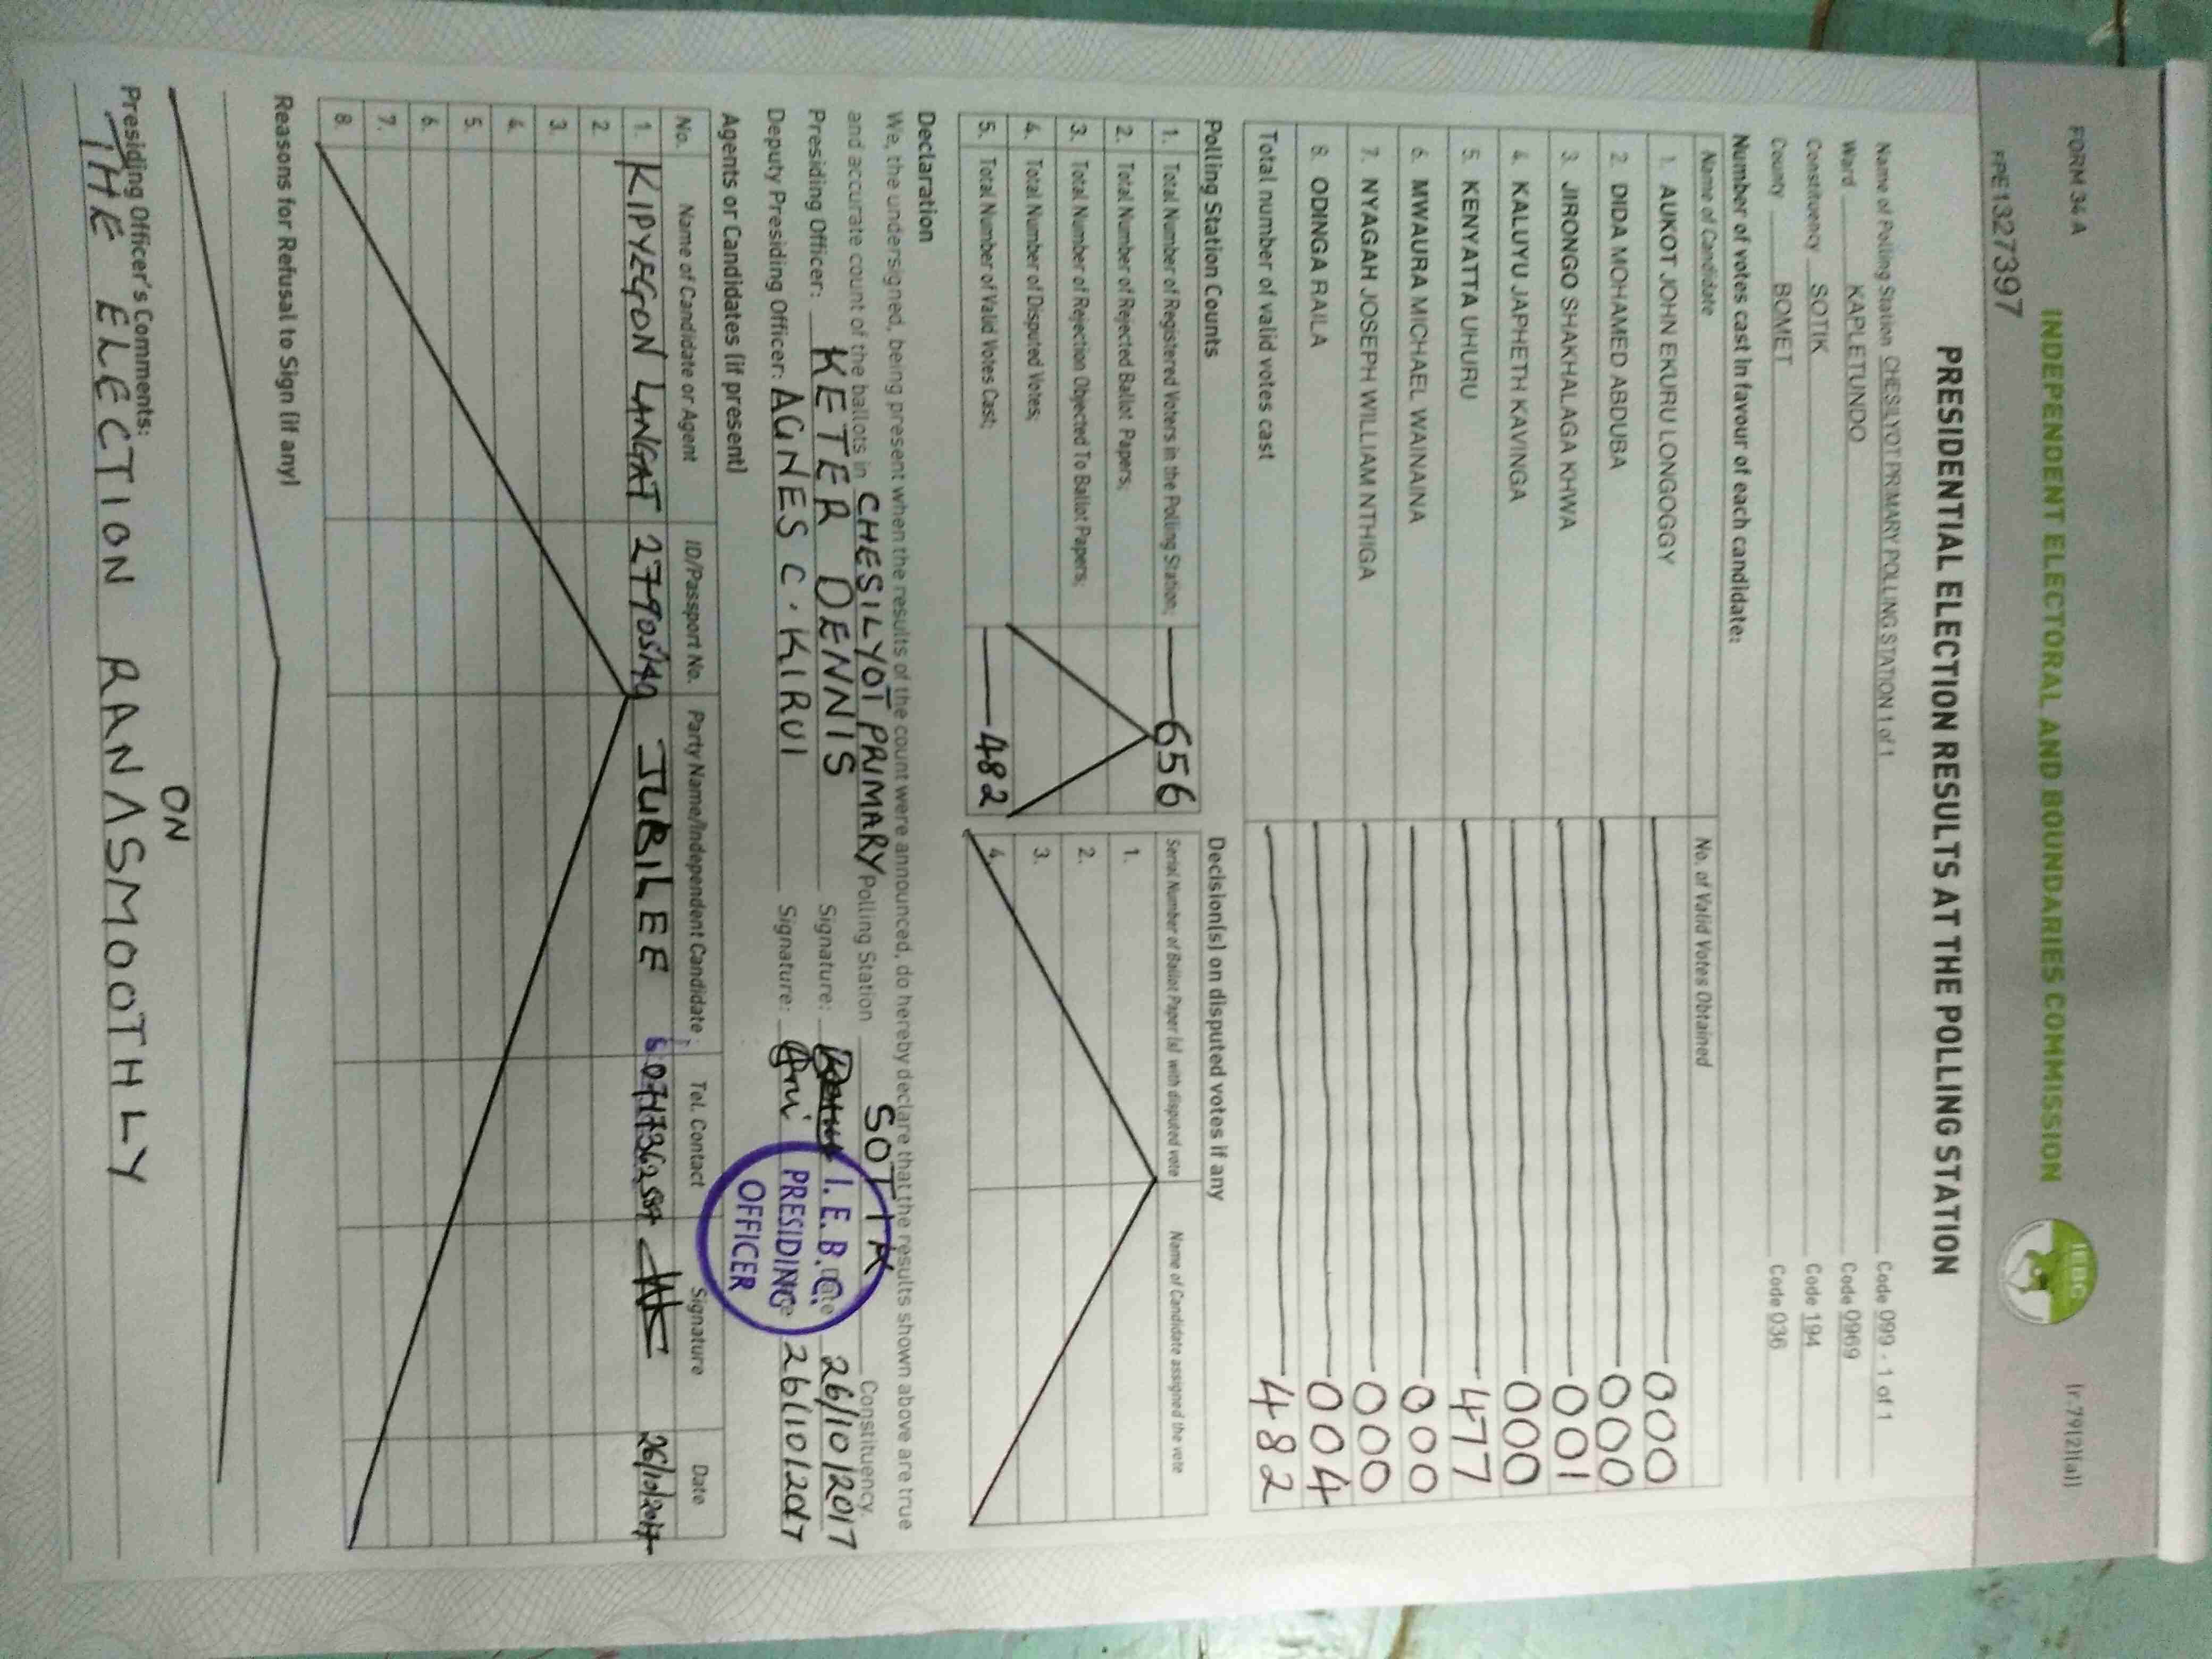 FORM 34 A
(r.79(2)(a))
INDEPENDENT ELECTORAL AND BOUNDARIES COMMISSION
IEBC
FPE1327397
PRESIDENTIAL ELECTION RESULTS AT THE POLLING STATION
Name of Polling Station CHESILYOT PRIMARY POLLING STATION 1 of 1 Code 099 - 1 of 1
Ward KAPLETUNDO Code 0969
Constituency SOTIK Code 194
County BOMET Code 036
Number of votes cast in favour of each candidate:
Name of Candidate No. of Valid Votes Obtained
1. AUKOT JOHN EKURU LONGOGGY 000
2. DIDA MOHAMED ABDUBA 000
3. JIRONGO SHAKHALAGA KHWA 001
4. KALUYU JAPHETH KAVINGA 000
5. KENYATTA UHURU 477
6. MWAURA MICHAEL WAINAINA 000
7. NYAGAH JOSEPH WILLIAM NTHIGA 000
8. ODINGA RAILA 004
Total number of valid votes cast 482
Polling Station Counts
1. Total Number of Registered Voters in the Polling Station; 656
2. Total Number of Rejected Ballot Papers;
3. Total Number of Rejection Objected To Ballot Papers;
4. Total Number of Disputed Votes;
5. Total Number of Valid Votes Cast; 482
Decision(s) on disputed votes if any
Serial Number of Ballot Paper (s) with disputed vote Name of Candidate assigned the vote
1.
2.
3.
4.
Declaration
We, the undersigned, being present when the results of the count were announced, do hereby declare that the results shown above are true
and accurate count of the ballots in CHESILYOT PRIMARY Polling Station SOTIK Constituency.
Presiding Officer: KETER DENNIS Signature: 26/10/2017
Deputy Presiding Officer: AGNES C. KIRUI Signature: 26/10/2017
I.E.B.C.
PRESIDING
OFFICER
Agents or Candidates (if present)
No. Name of Candidate or Agent ID/Passport No. Party Name/Independent Candidate Tel. Contact Signature Date
1. KIPYEGON LANGAT JUBILEE 26/10/2017
2.
3.
4.
5.
6.
7.
8.
Reasons for Refusal to Sign (if any)
Presiding Officer's Comments:
ON
THE ELECTION RAN SMOOTHLY